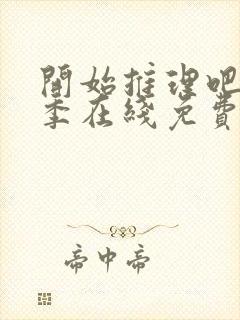 開始推理吧
季在綫免費
帝中帝